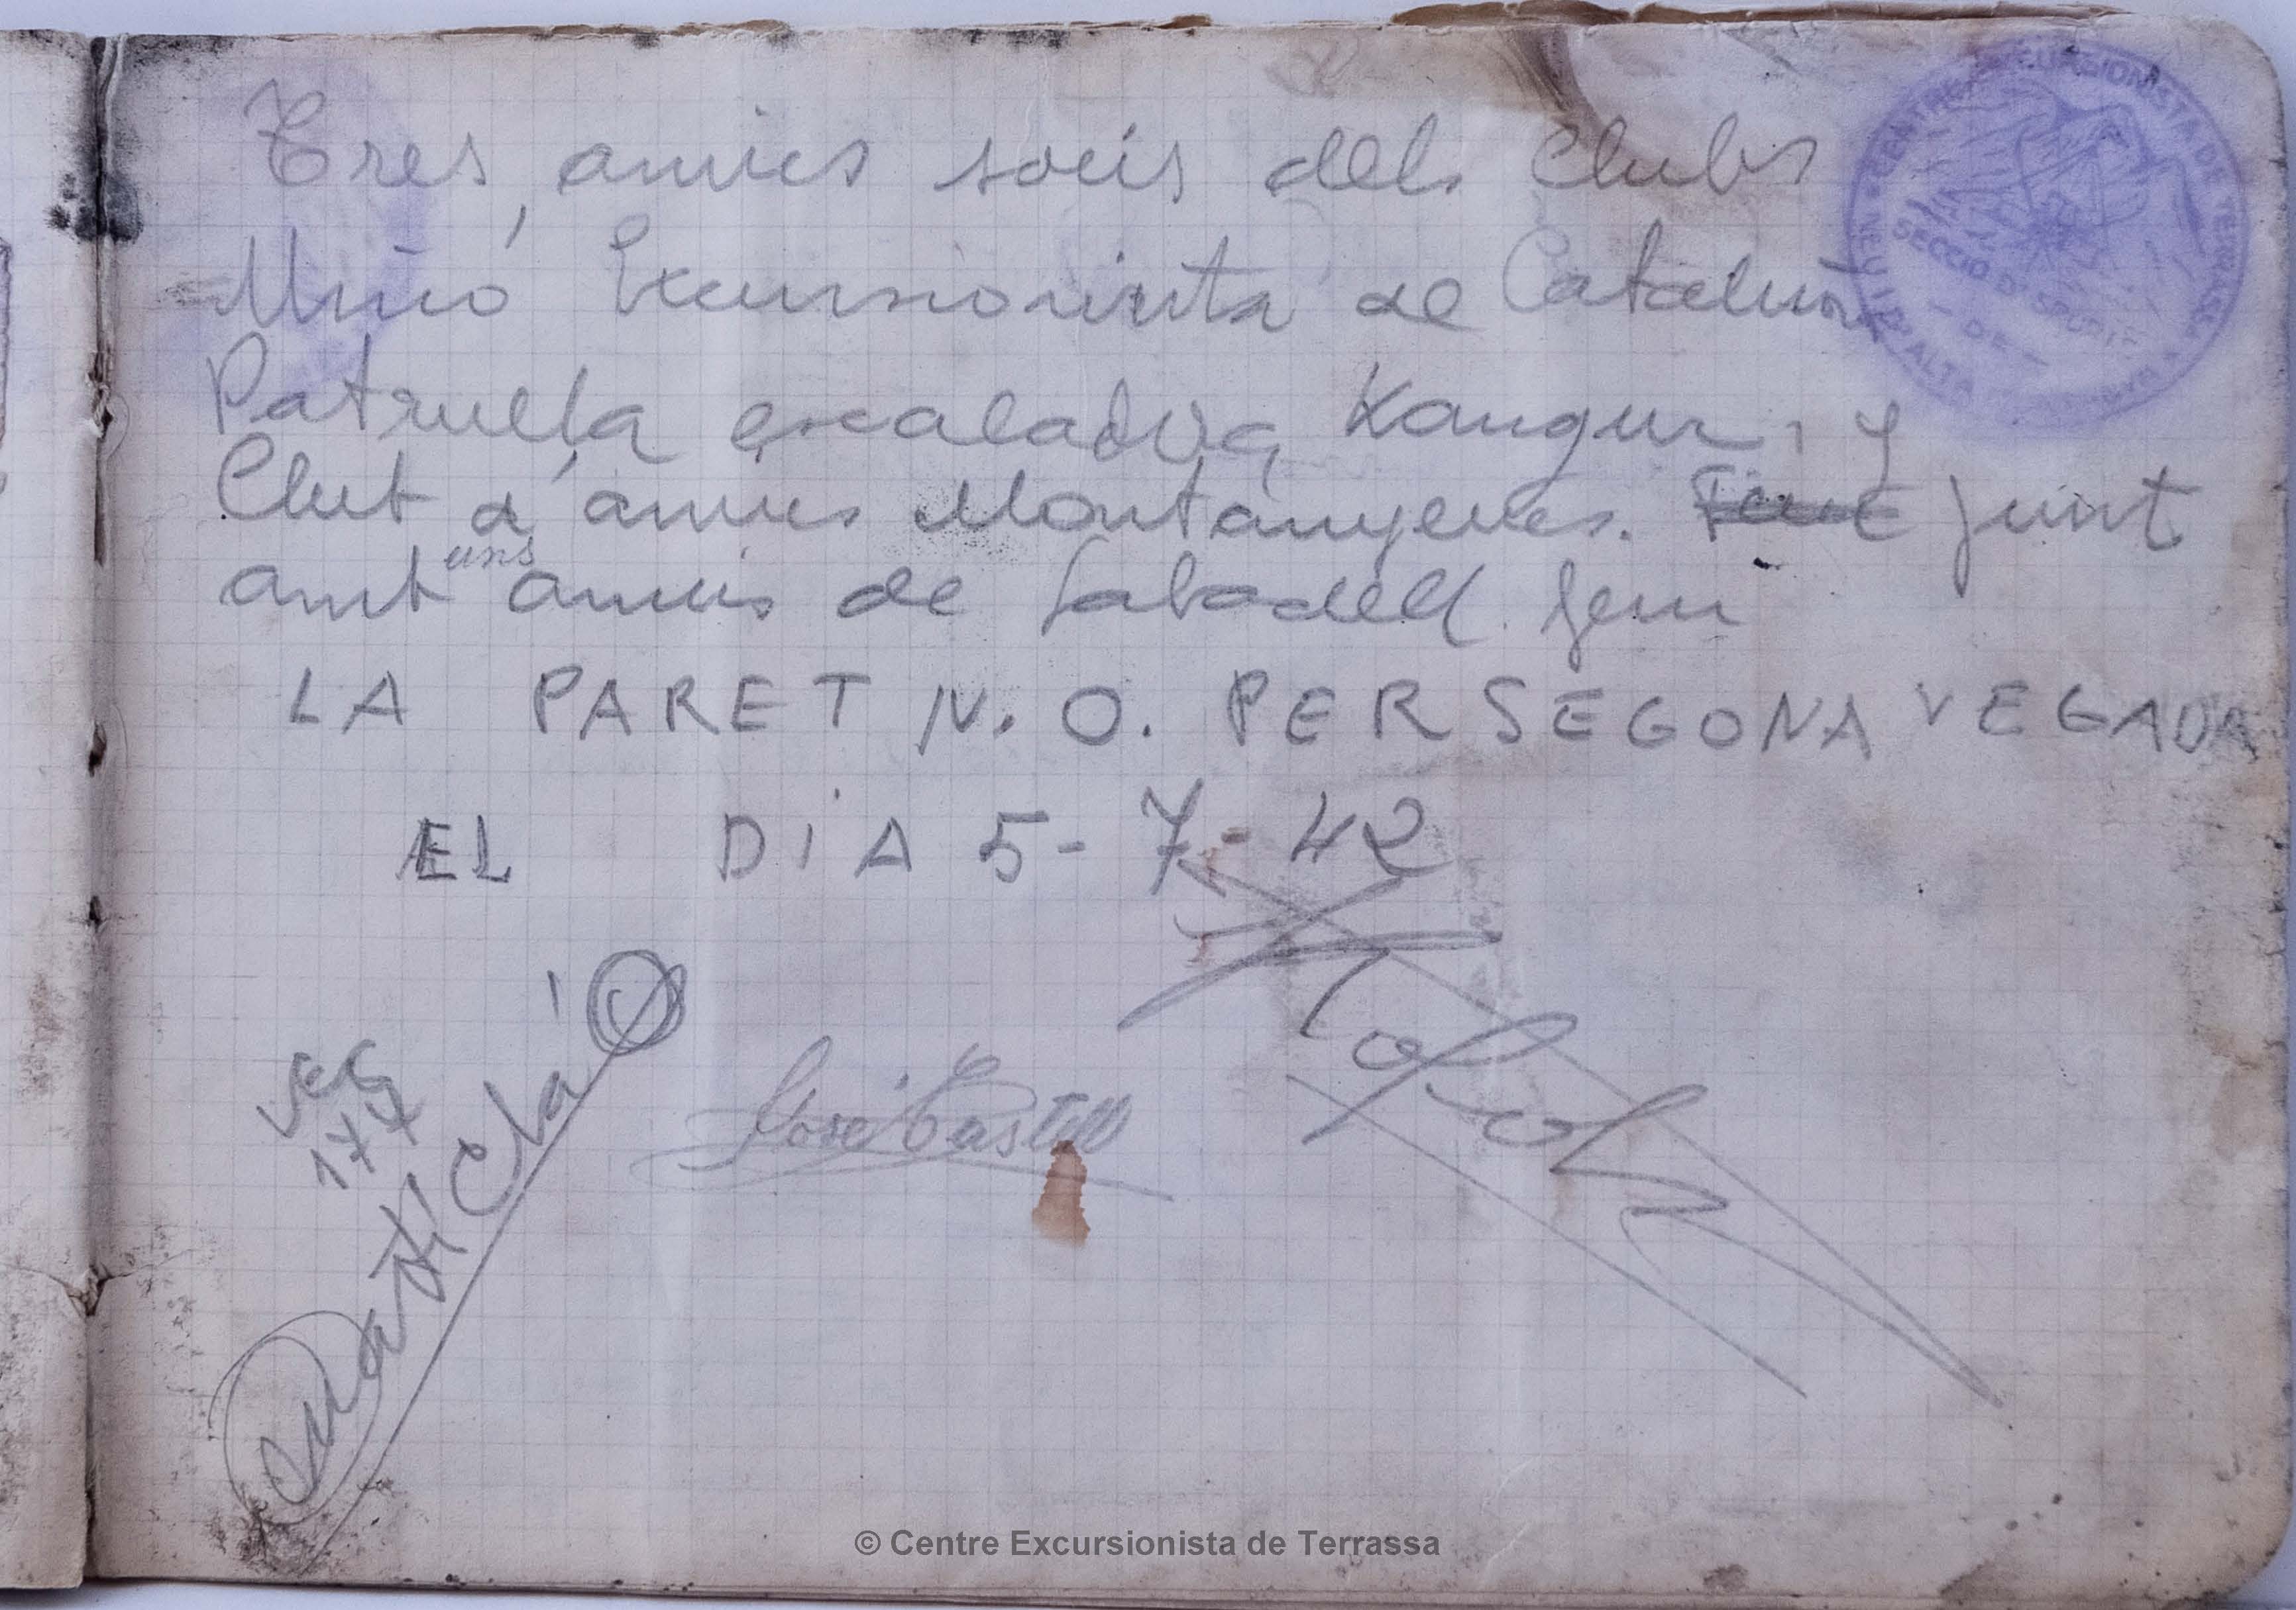 Tres amics socis dels Clubs
Unió Excursionista de Cataluña
Patrulla escaladora Kangur, y
Club d'amics Montanyencs. junt
amb uns amics de Sabadell fem
LA PARET N.O. PER SEGONA VEGADA
EL DIA 5-7-42
CENTRE EXCURSIONISTA DE TERRASSA
SECCIÓ D'ESPORTS
DE
NEU I D'ALTA
José Castell
Martí Clá
© Centre Excursionista de Terrassa